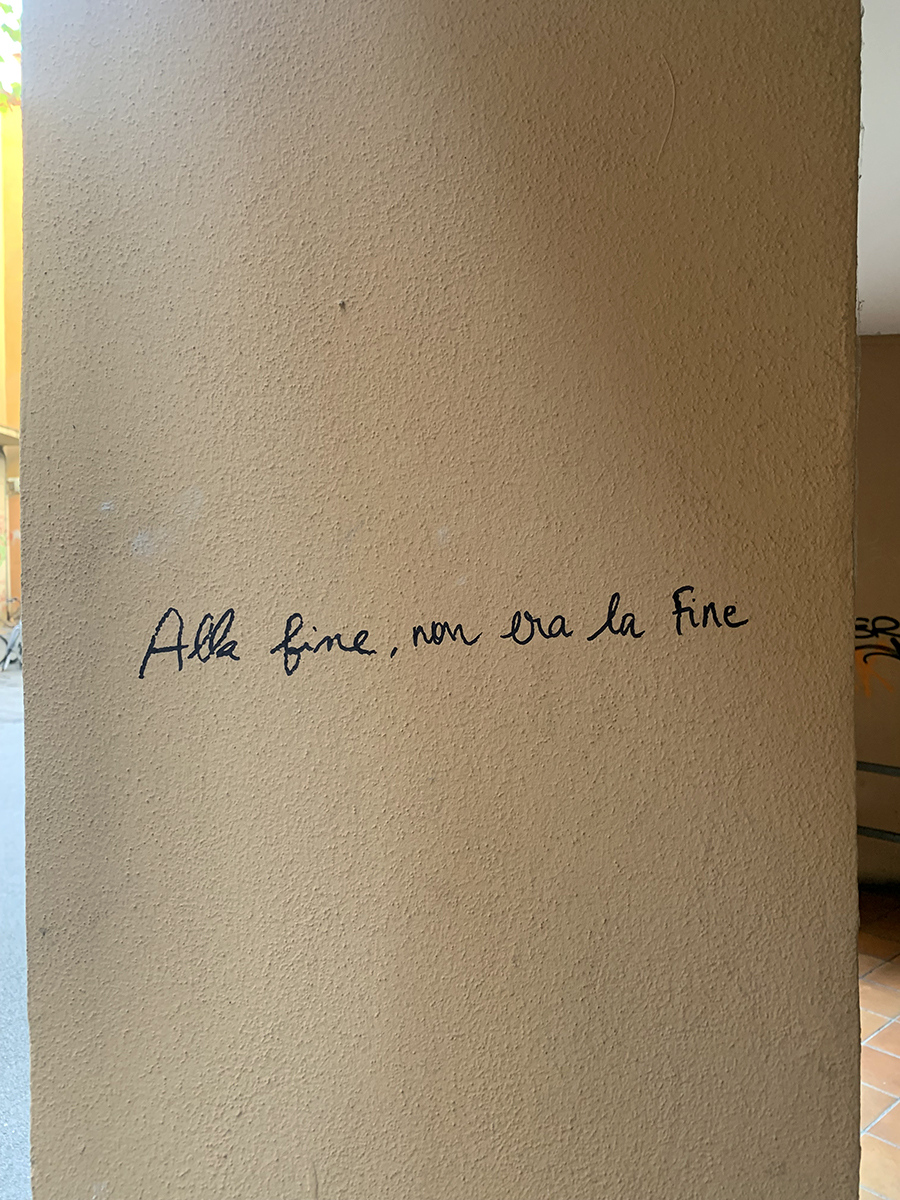 Alla fine, non era la Fine